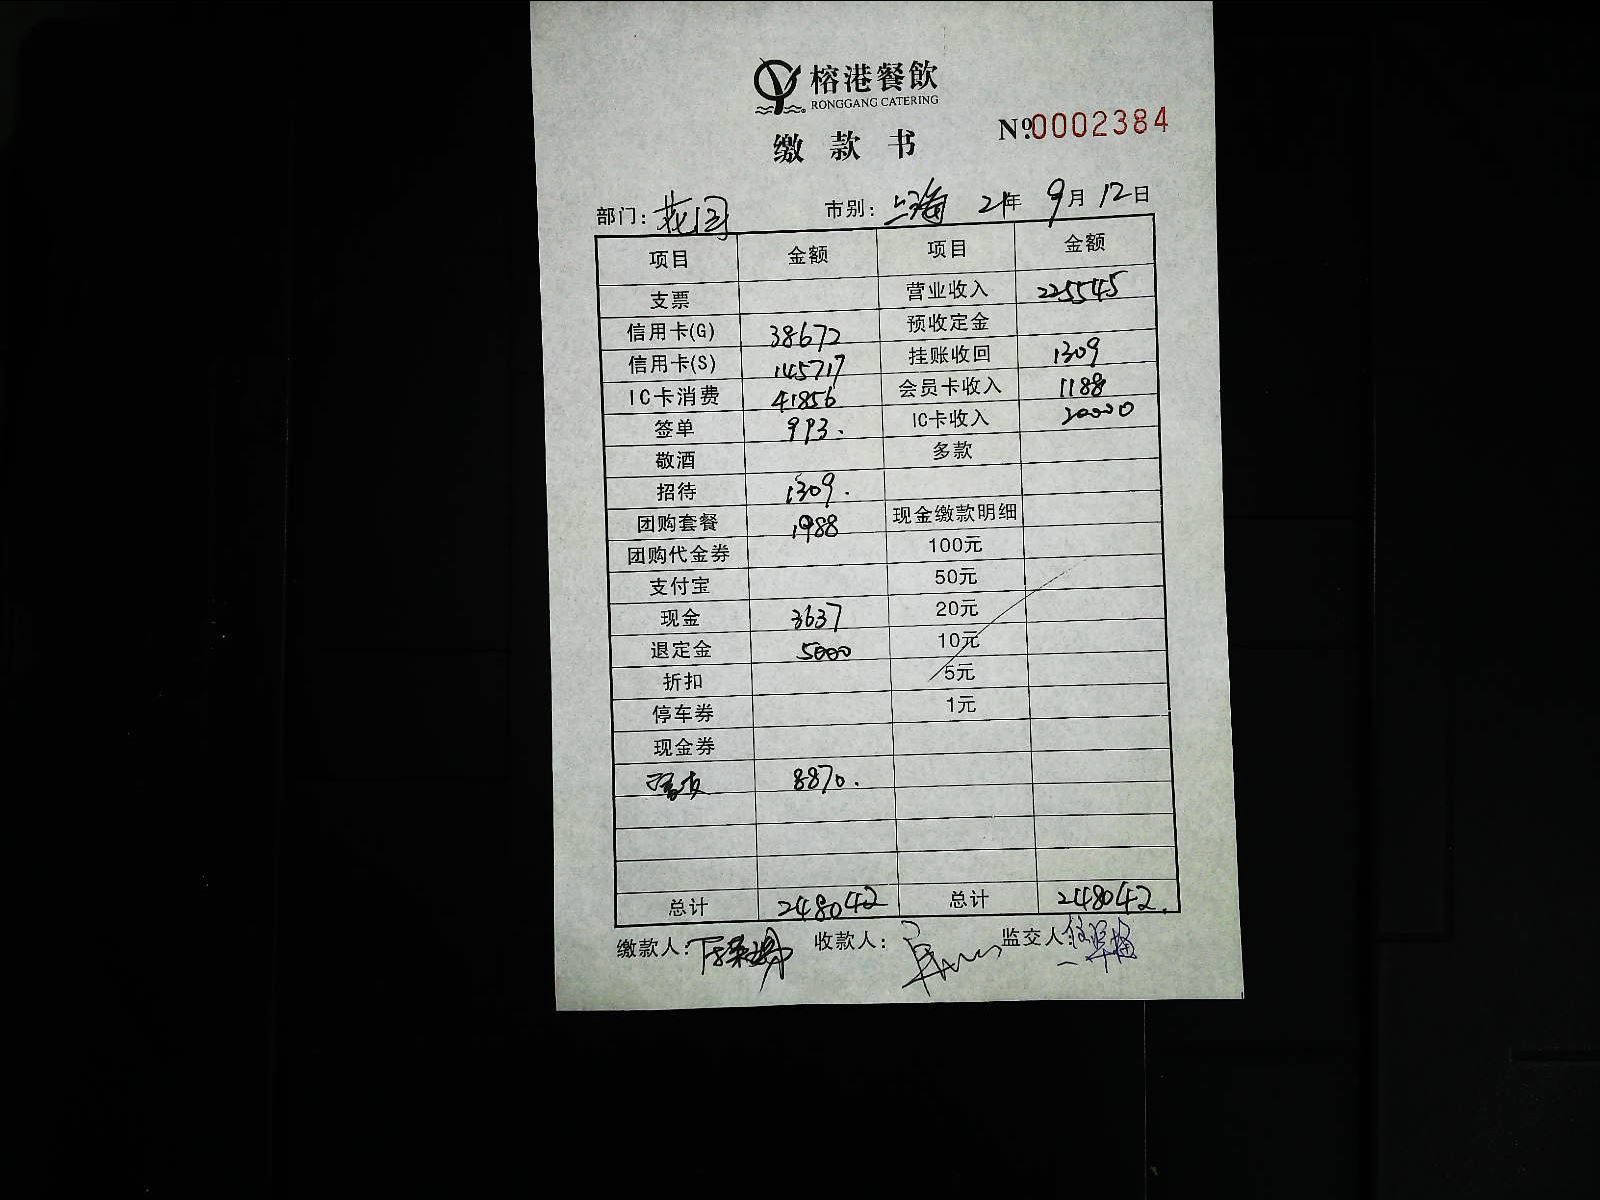 榕港餐飲
RONGGANG CATERING
缴款书 №0002384
部门: 花园 市别: 上海 21年 9月12日
项目 金额 项目 金额
支票 营业收入 225545
信用卡(G) 38672 预收定金
信用卡(S) 145717 挂账收回 1309
IC卡消费 41856 会员卡收入 1188
签单 993. IC卡收入 20000
敬酒 多款
招待 1309.
团购套餐 1988 现金缴款明细
团购代金券 100元
支付宝 50元
现金 3637 20元
退定金 5000 10元
折扣 5元
停车券 1元
现金券
8870.
总计 248042 总计 248042.
缴款人: 收款人: 监交人: